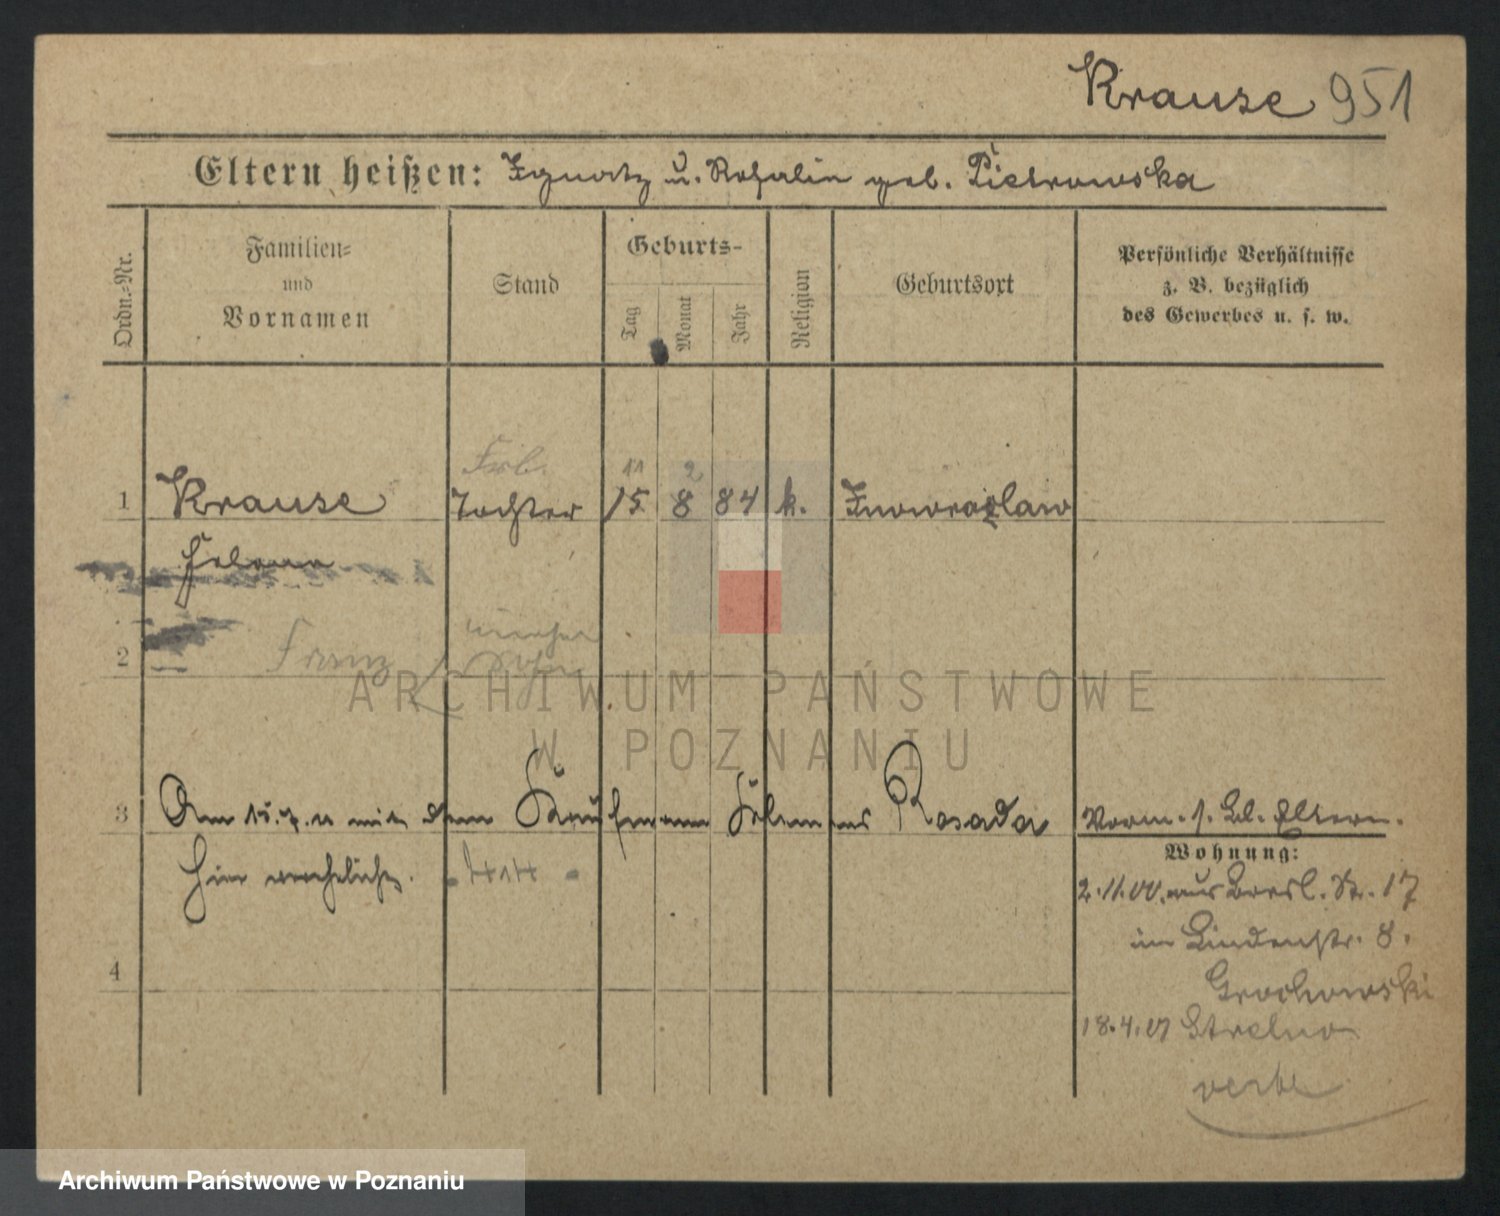 Krause 951
Eltern heißen: Ignatz u. Rosalie geb. Pietrowska
Ordn.-Nr.
Familien-
und
Vornamen
Stand
Geburts-
Tag
Monat
Jahr
Religion
Geburtsort
Persönliche Verhältnisse
z. B. bezüglich
des Gewerbes u. s. w.
11 2
1 Krause Tochter 15 8 84 k. Inowrazlaw
Helene
2 Franz Sohn
3 Am 15. mit dem Kaufmann Rosada
hier verehelicht.
Vorm. s. Bl. Eltern.
Wohnung:
2.11.00. aus Bresl. Str. 17
im Lindenstr. 8.
Grochowski
4
18.4.07 Strelno
ARCHIWUM PAŃSTWOWE
W POZNANIU
Archiwum Państwowe w Poznaniu